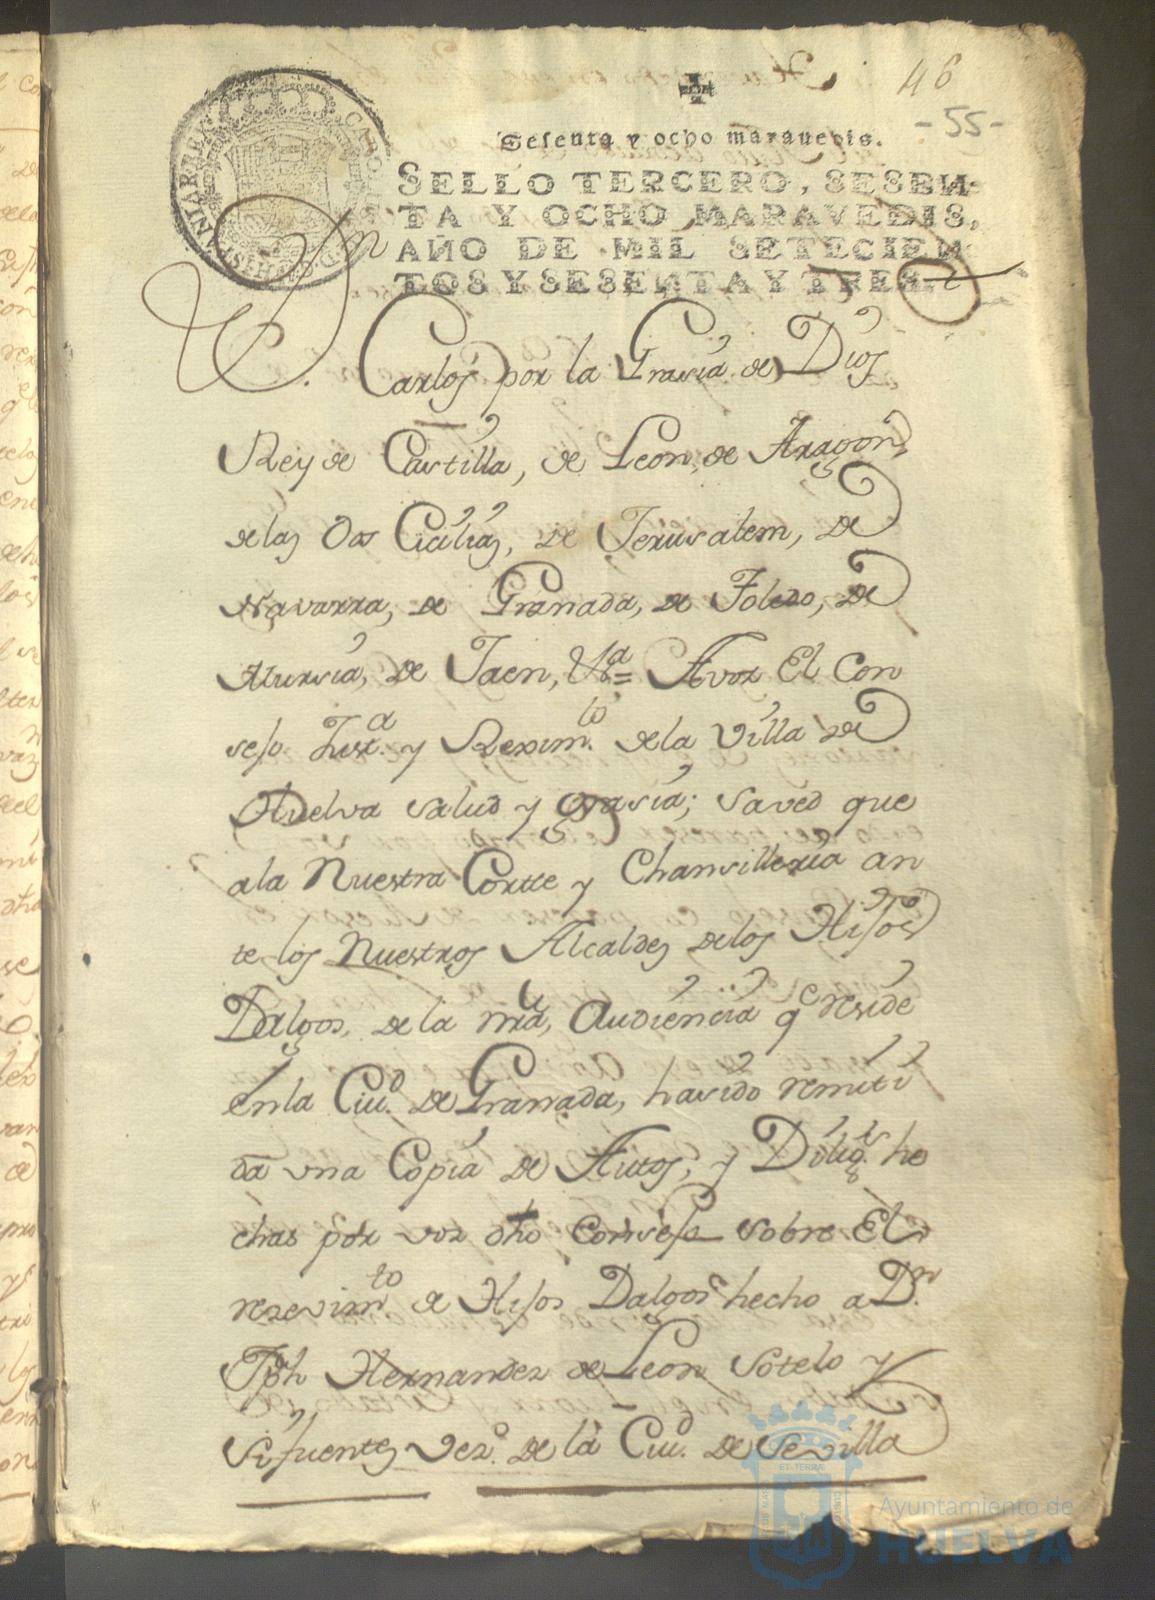 46
-55-
Sesenta y ocho maravedis.
SELLO TERCERO, SESEN-
TA Y OCHO MARAVEDIS,
AÑO DE MIL SETECIEN-
TOS Y SESENTA Y TRES.
Dn. Carlos por la Gracia de Dios
Rey de Castilla, de Leon, de Aragon,
de las Dos Cicilias, de Jerusalem, de
Navarra, de Granada, de Toledo, de
Mursia, de Jaen, &a= Avos El Con
sejo Just.a y Rexim.to de la Villa de
Huelva salud y grasia; saved que
ala Nuestra Cortte y Chansilleria an
te los Nuestros Alcaldes delos Hijos
Dalgos, de la nra, Audiencia qe reside
enla Ciud. de Granada, hasido remiti
da una Copia de Autos, y Dilig.s he
chas por vos dho Consejo sobre El
resevim.to de Hijos Dalgos hecho a Dn.
Jph Hernandez de Leon Sotelo y
Sifuentes vez.o de la Ciud. de Sevilla
Ayuntamiento de
HUELVA